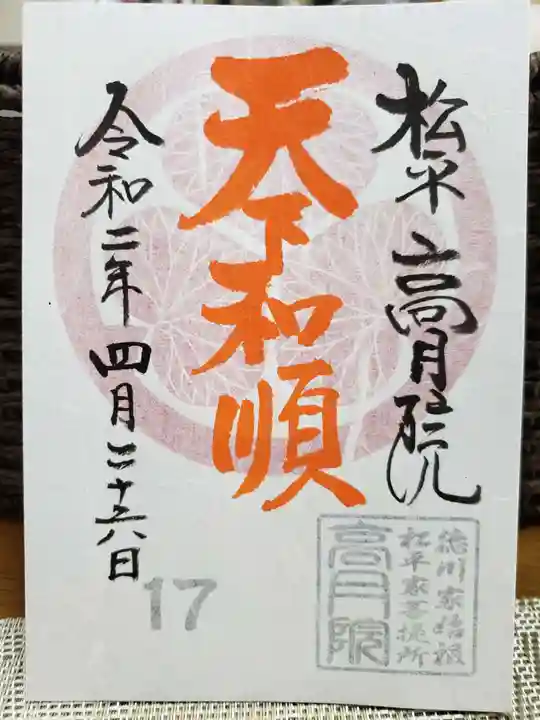 松平高月院
天下和順
令和二年四月二十六日
17
徳川家始祖
松平家菩提所
高月院